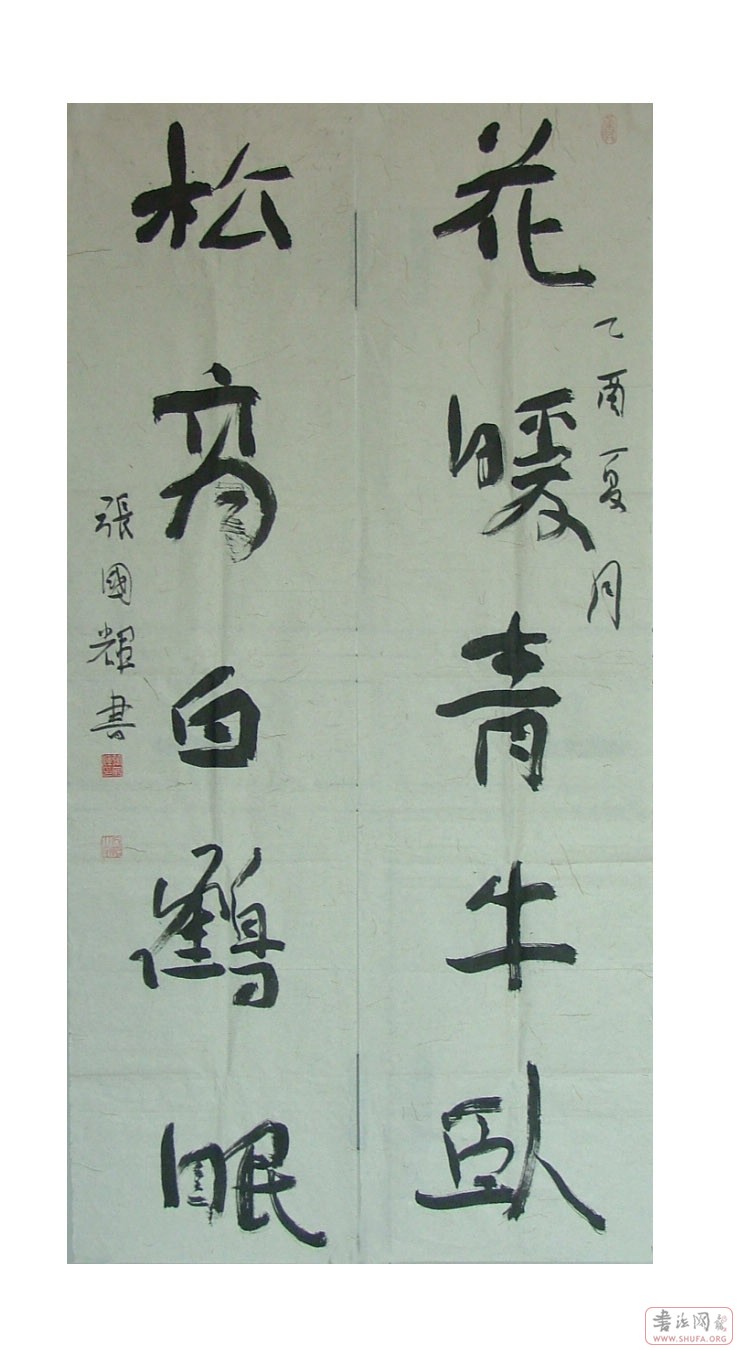 花暖青牛卧
乙酉夏月
松高白鶴眠
張國輝書
書法网
WWW.SHUFA.ORG